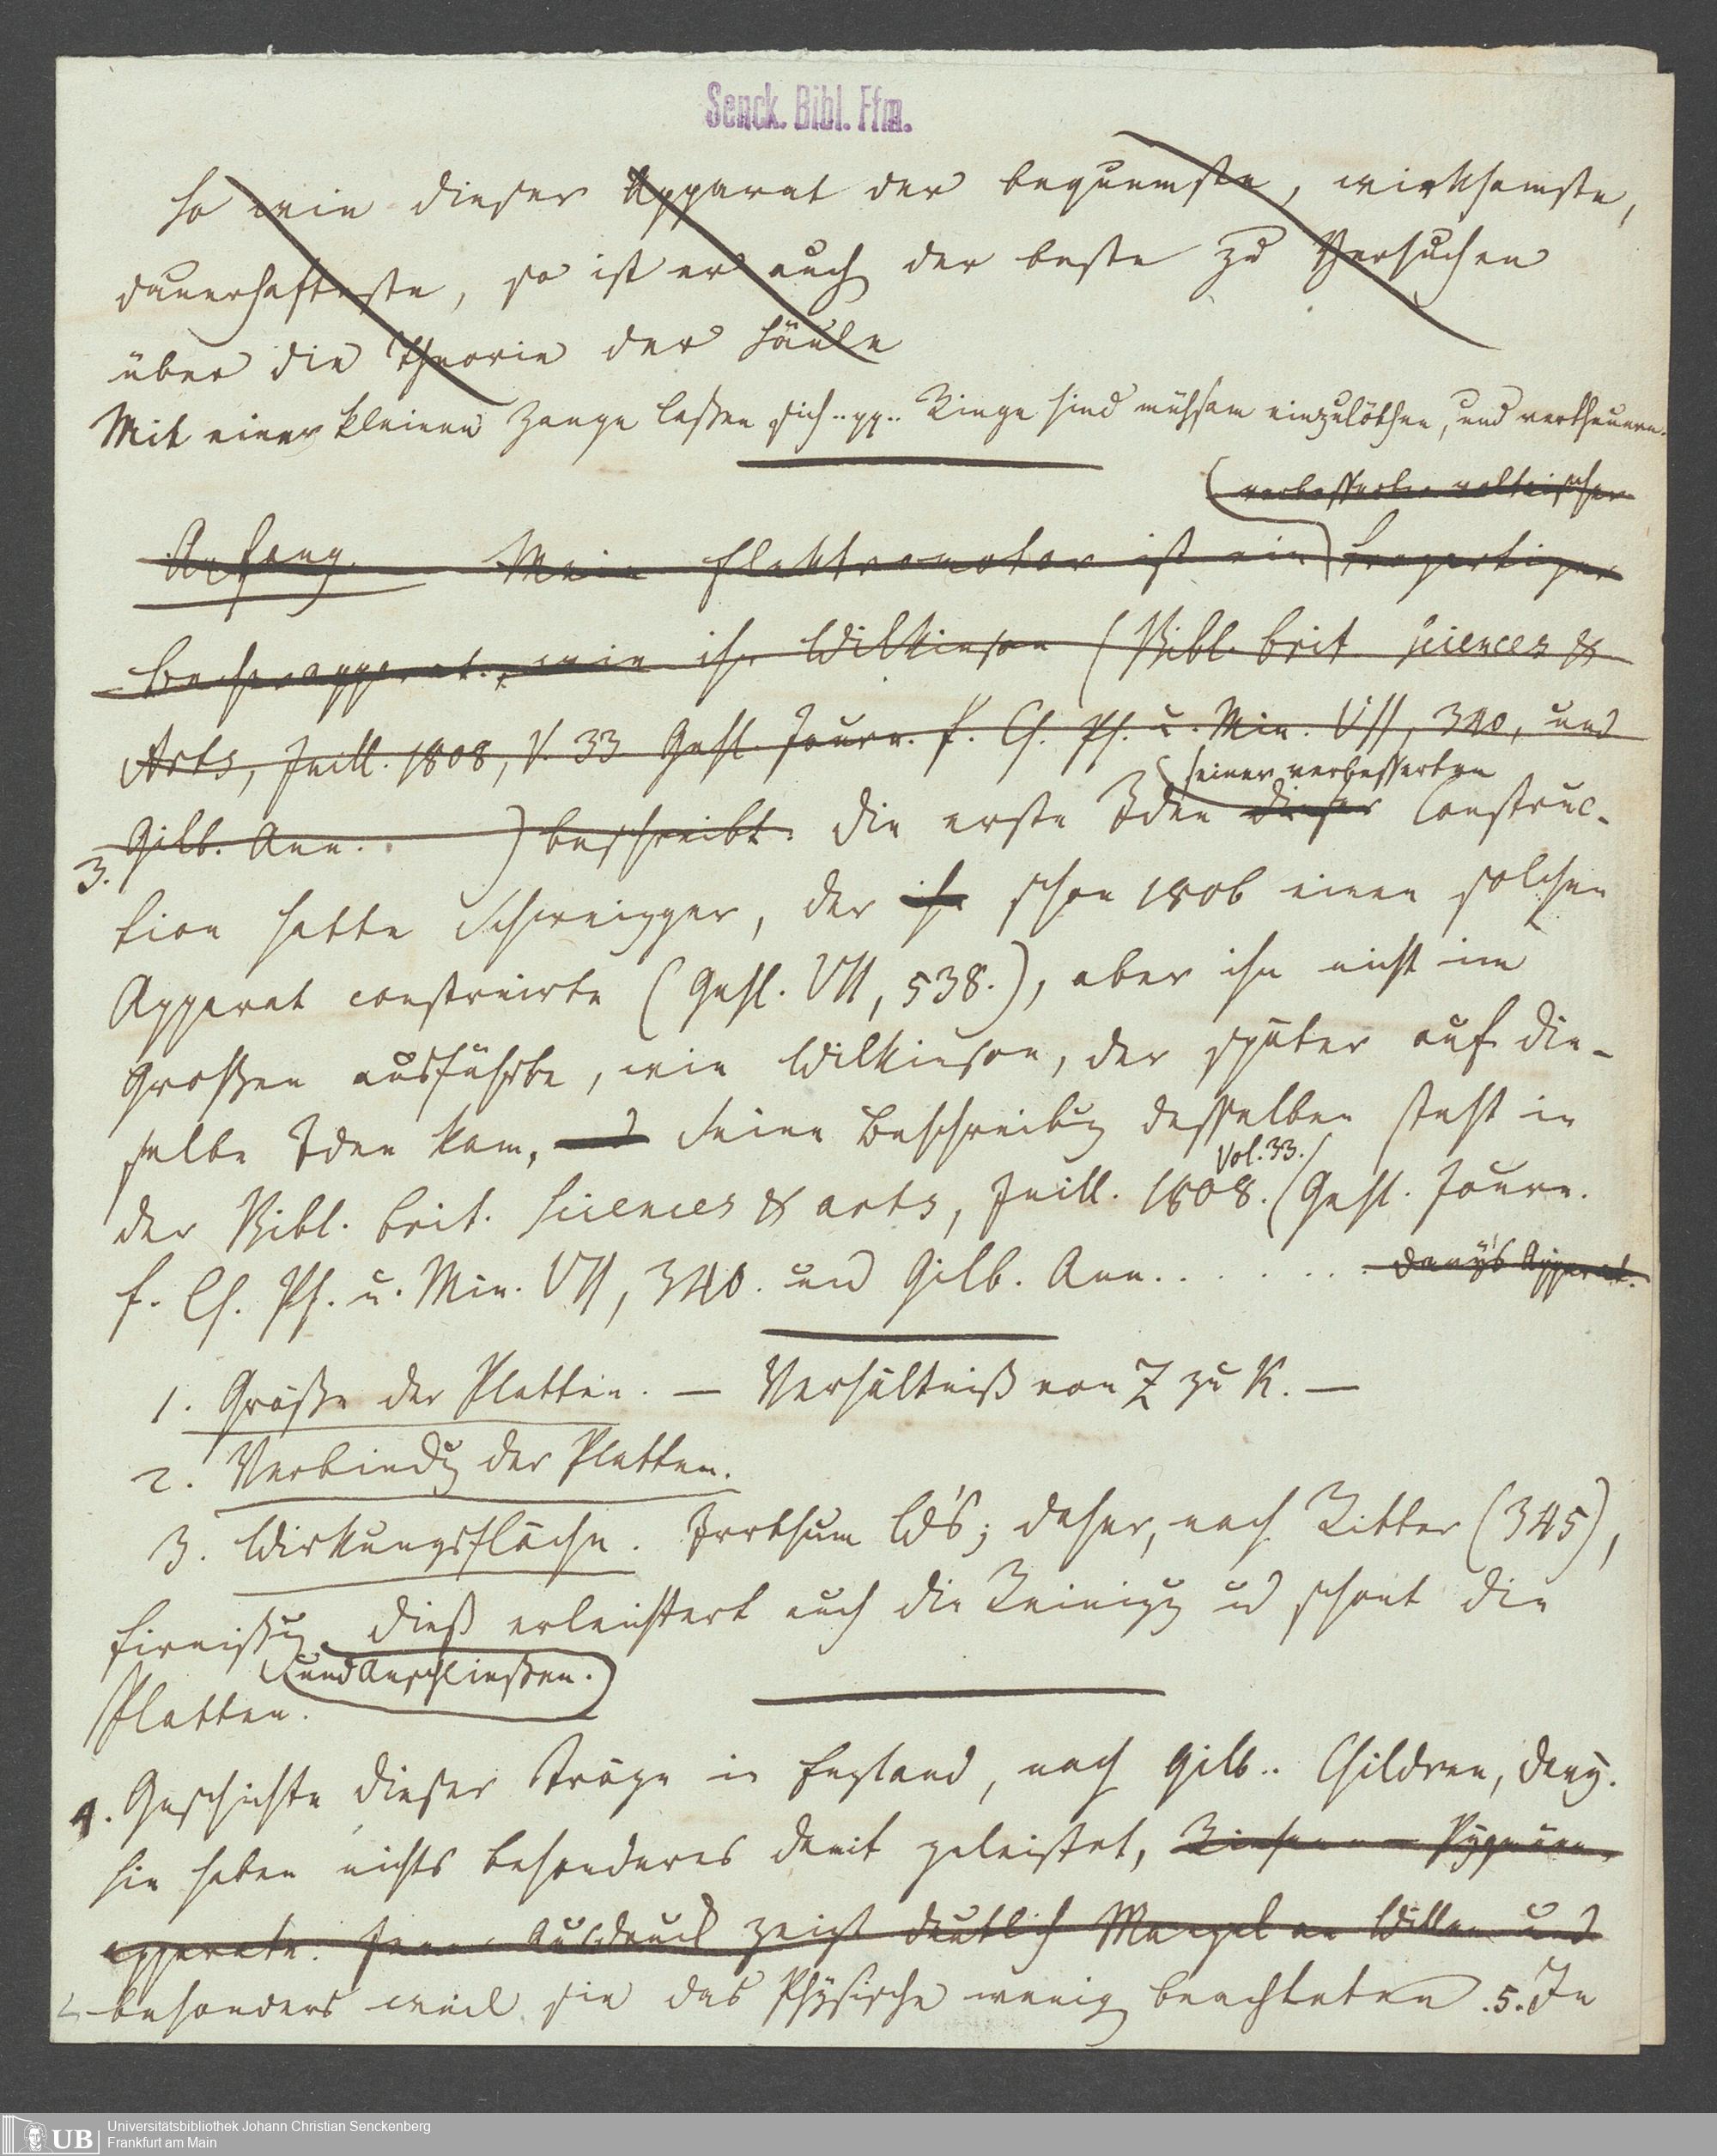 Senck. Bibl. Ffm.
So wie dieser Apparat der bequemste, wirksamste,
dauerhafteste, so ist er auch der beste zu Versuchen
über die Theorie der Säule
Mit einer kleinen Zange laßen sich .. pp .. Ringe sind mühsam einzulöthen, und vertheuern.
verbesserter voltaischer
Anfang. Mein Elektromotor ist ein trogartiger
Becherapparat, wie ihn Wilkinson (Bibl. brit. Sciences &
Arts, Juill. 1808, V. 33 Gehl. Journ. f. Ch. Ph. u. Min. VII, 340, und
seiner verbesserten
Gilb. Ann. ) beschreibt. Die erste Idee dieser Construc-
3.
tion hatte Schweigger, der ihn schon 1806 einen solchen
Apparat construirte (Gehl. VII, 538.), aber ihn nicht im
Großen ausführte, wie Wilkinson, der später auf die-
selbe Idee kam, und Seine Beschreibung desselben steht in
Vol. 33.
der Bibl. brit. Sciences & arts, Juill. 1808. (Gehl. Journ.
f. Ch. Ph. u. Min. VII, 340. und Gilb. Ann. . . . . . . Davy's Apparat.
1. Größe der Platten. — Verhältniß von Z zu K. —
2. Verbindg der Platten.
3. Wirkungsfläche. Irrthum W's; daher, nach Ritter (345),
Firnissg. Dieß erleichtert auch die Reinigg und schont die
und Anschließen.
Platten.
4. Geschichte dieser Tröge in England, nach Gilb.. Children, Davy.
Sie haben nichts besonderes damit geleistet, Riesen- Pygmäen-
apparate. Jener Ausdruck zeigt deutlich Mangel an Willen und
besonders weil sie das Physische wenig beachteten. 5. In
Universitätsbibliothek Johann Christian Senckenberg
UB Frankfurt am Main